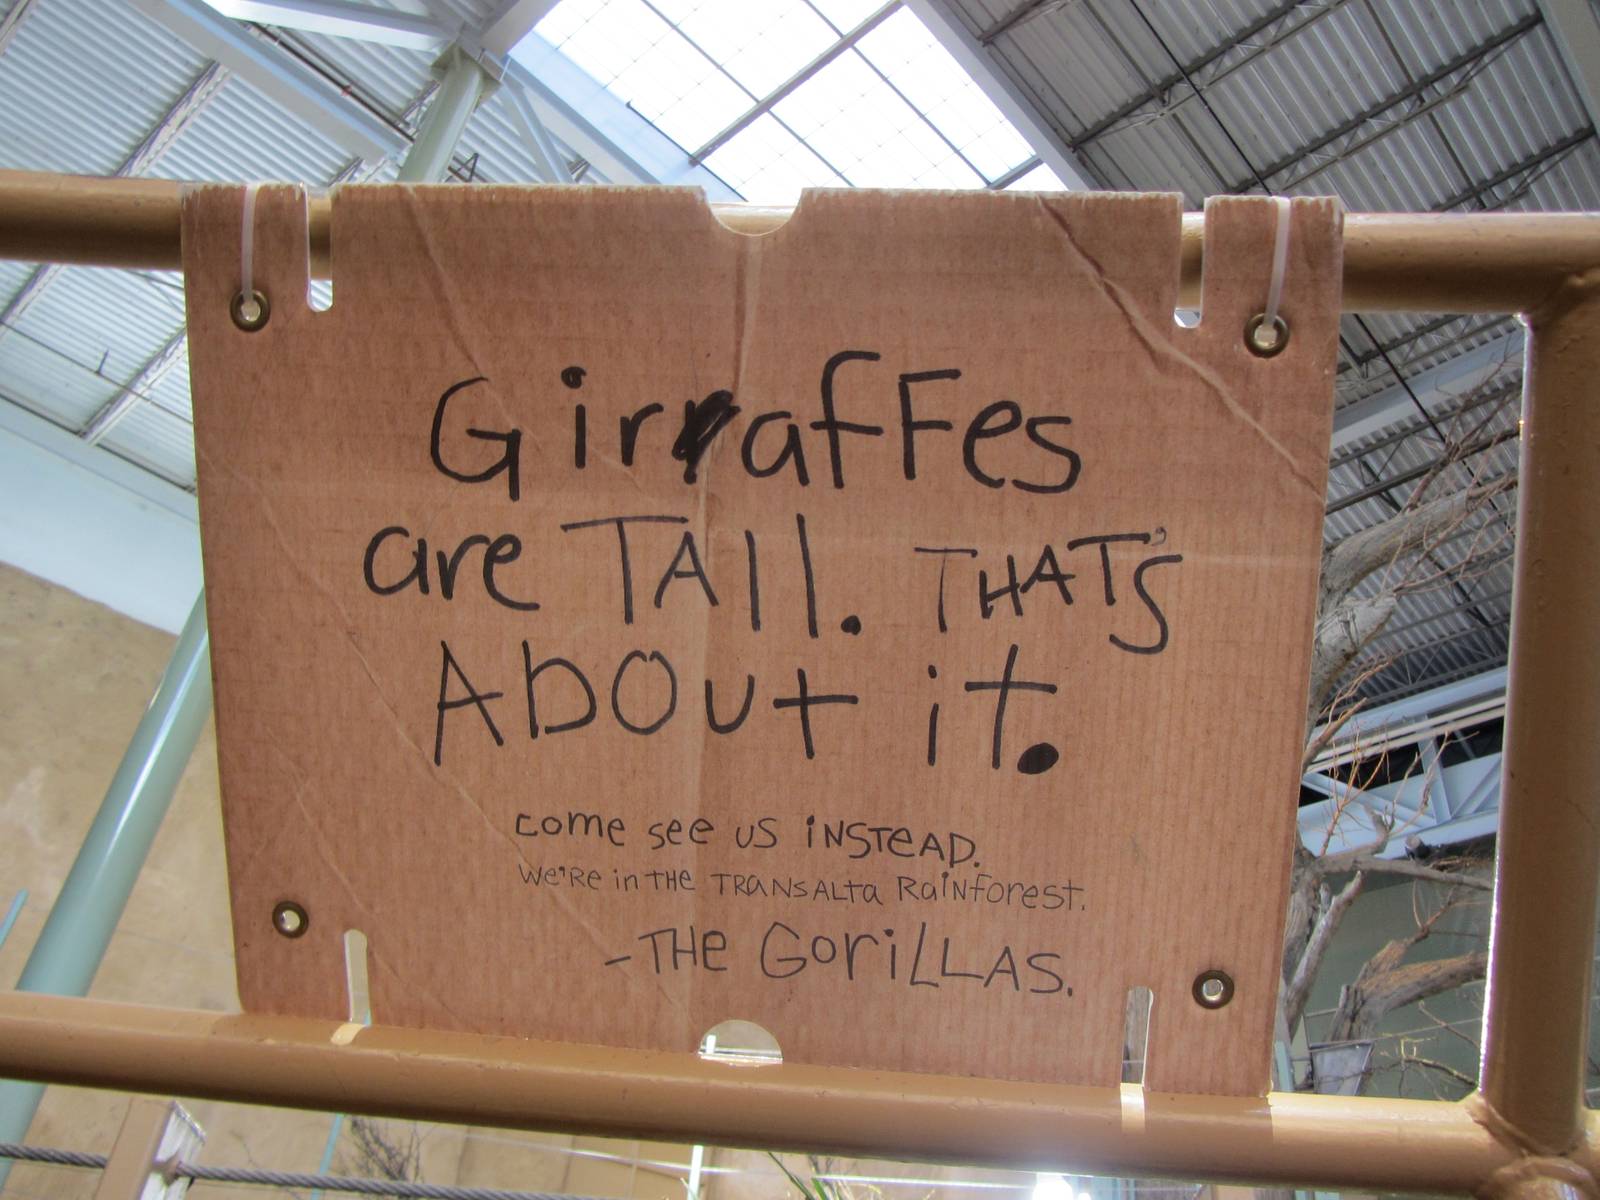 Giraffes
are TAll. THAT'S
AbOut it.
come see us iNSTeAD.
We're in THE TRaNSALTa RaiNforest.
-THe GoriLLAS.